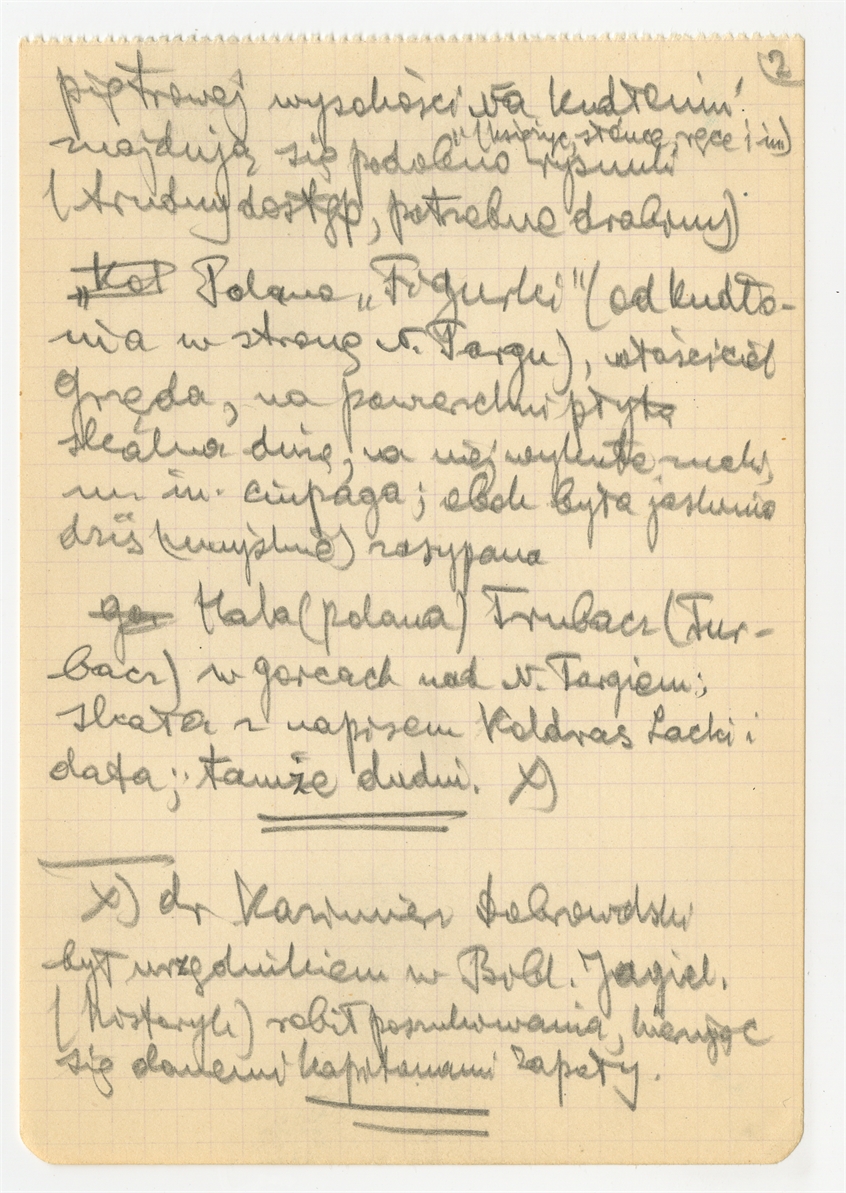 2
piętrowej wysokości. Na Kudłoniu
znajdują się podobno rysunki
(księżyc, słońce, ręce i in)
(trudny dostęp, potrzebne drabiny)
„Kot Polana „Figurki" (od Kudło-
nia w stronę N. Targu), właściciel
Gręda, na powierzchni płyta
skalna duża, na niej wykute znaki,
m. in. ciupaga; obok była jaskinia
dziś (umyślnie) zasypana
gor Hala (polana) Trubacz (Tur-
bacz) w gorcach nad N. Targiem;
skała z napisem Koldras Lacki i
data; tamże dudni. X)
X) dr Kazimierz Dobrowolski
był urzędnikiem w Bibl. Jagiel.
(historyk) robił poszukiwania, kierując
się danemi kapitanami Zapały.